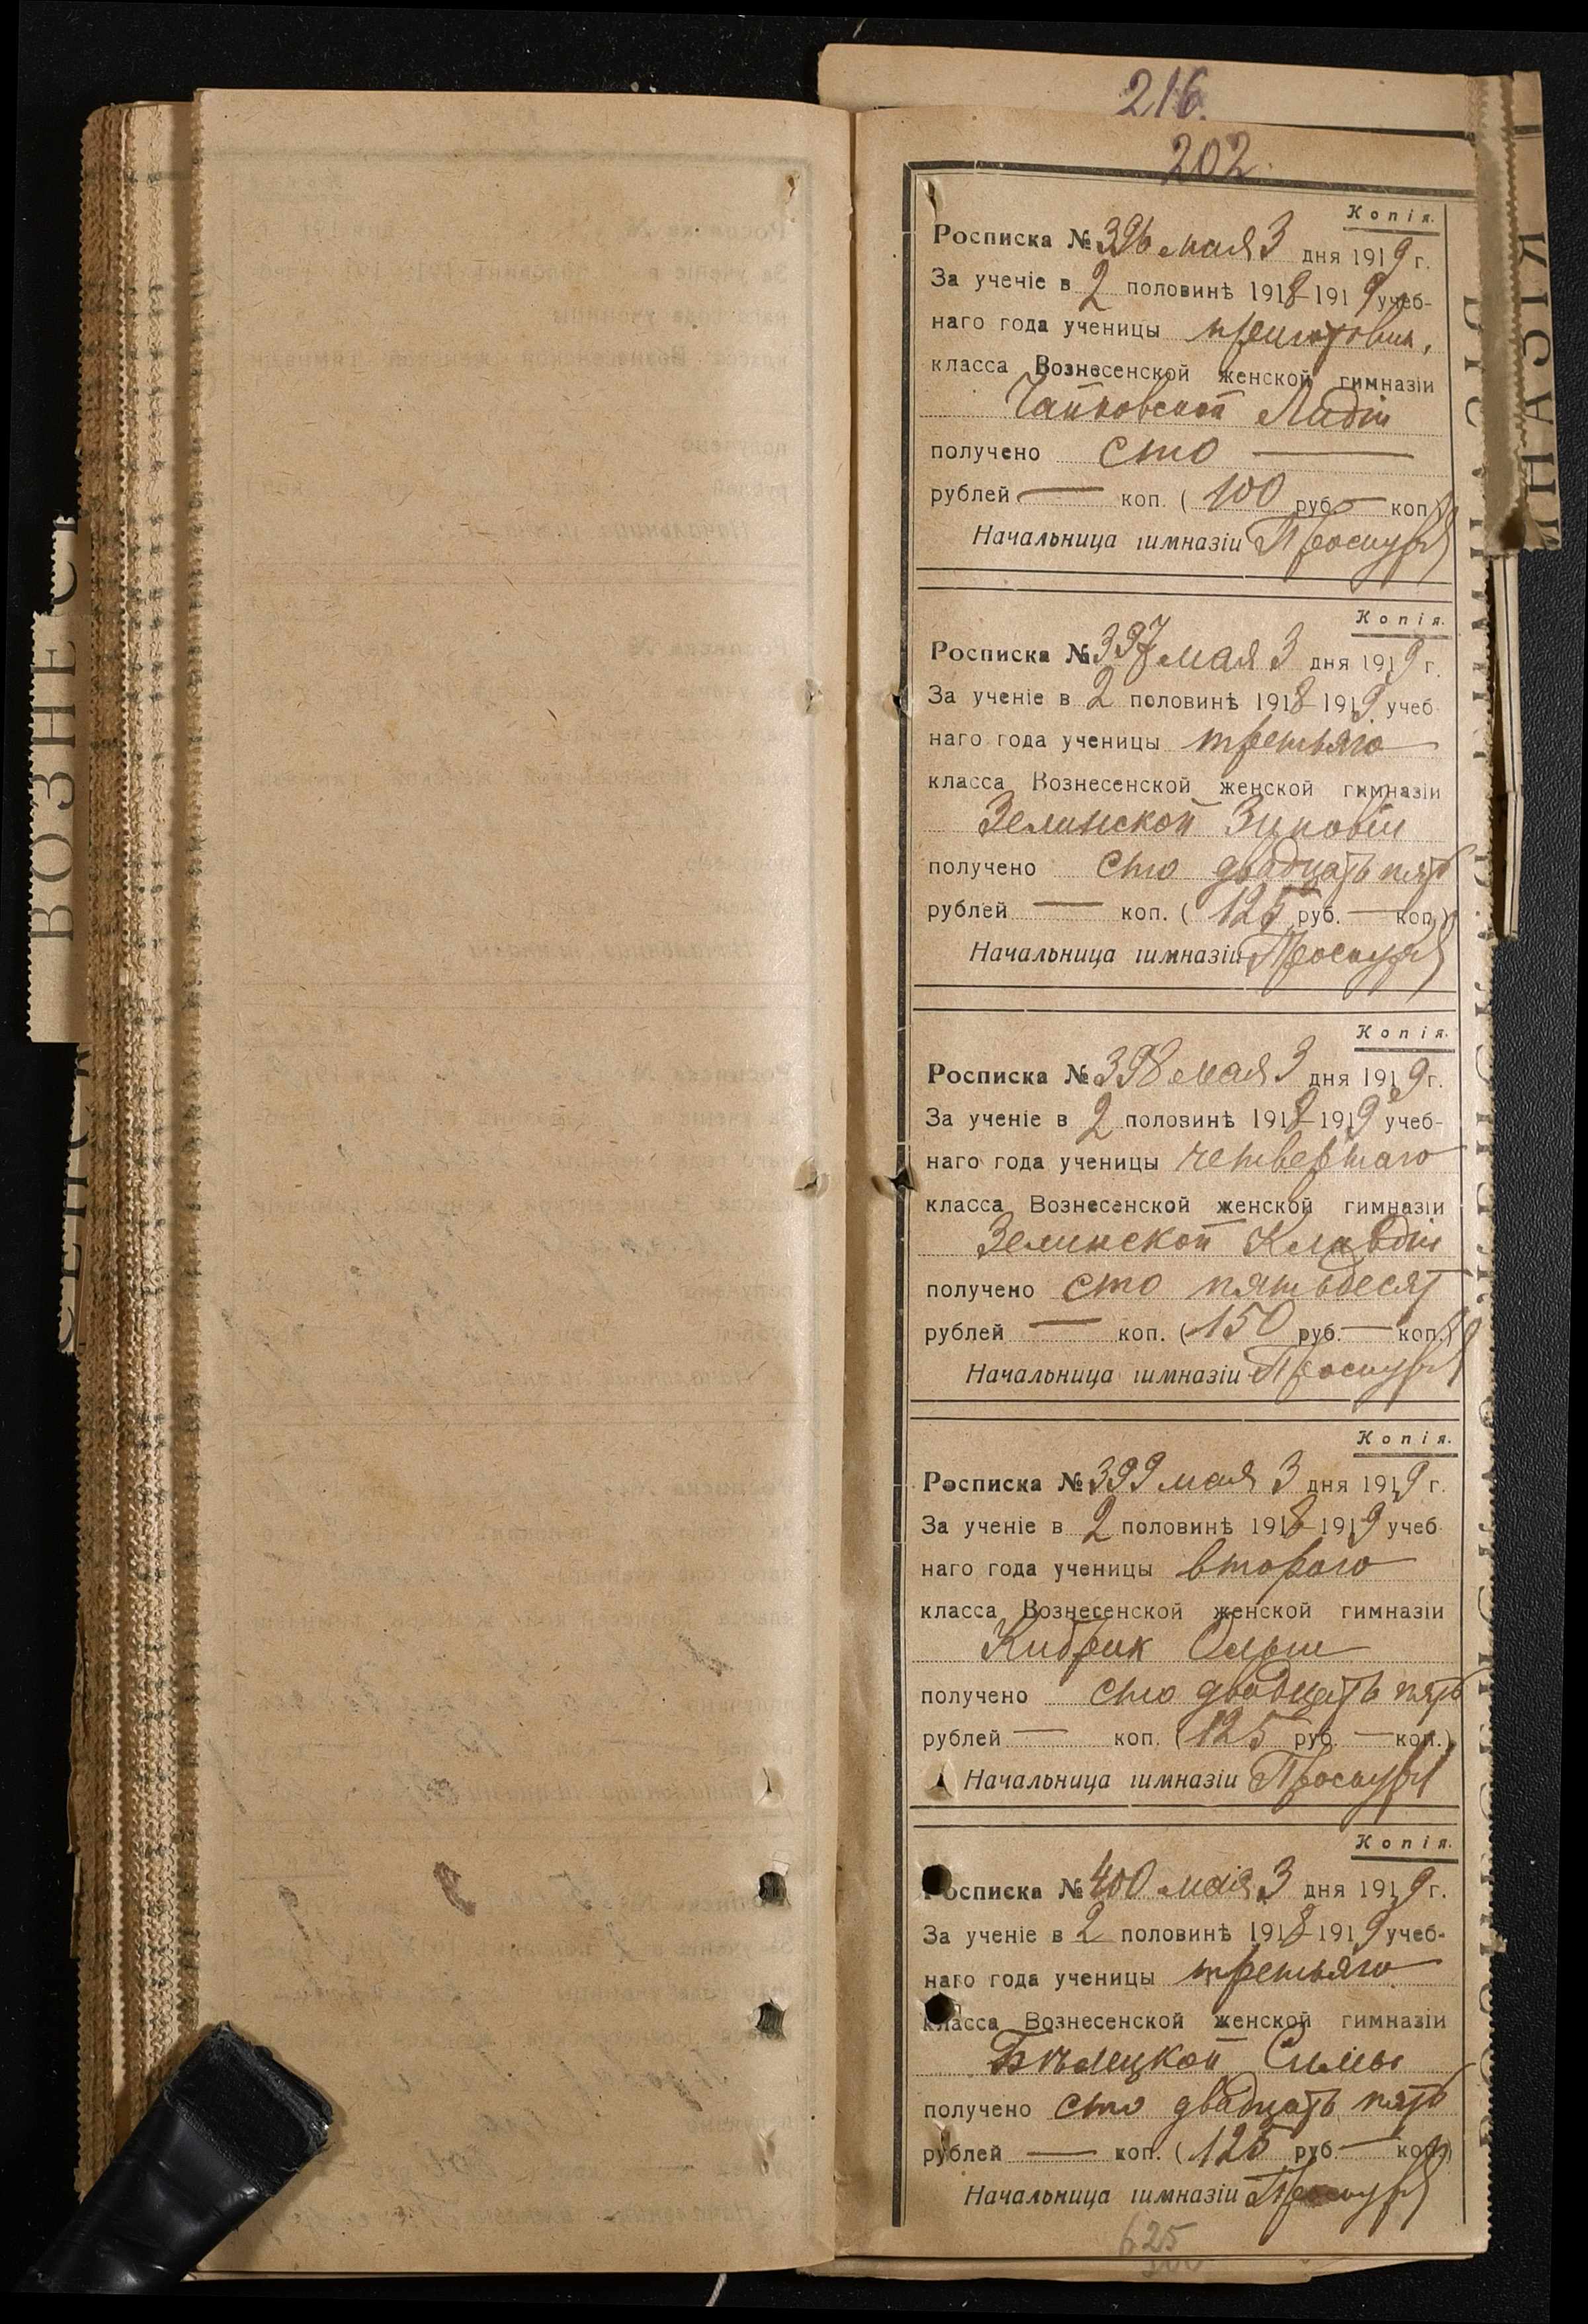 216.
202.
Копія.
Росписка № 396 мая 3 дня 1919 г.
За ученіе в 2 половинѣ 1918-1919 учеб-
наго года ученицы приготовит.
класса Вознесенской женской гимназіи
Чайковской Лидіи
получено сто —
рублей — коп. (100 руб. — коп.)
Начальница гимназіи
Копія.
Росписка № 397 мая 3 дня 1919 г.
За ученіе в 2 половинѣ 1918-1919 учеб-
наго года ученицы третьяго
класса Вознесенской женской гимназіи
Зелинской Зиновіи
получено сто двадцать пять
рублей — коп. (125 руб. — коп.)
Начальница гимназіи
Копія.
Росписка № 398 мая 3 дня 1919 г.
За ученіе в 2 половинѣ 1918-1919 учеб-
наго года ученицы четвертаго
класса Вознесенской женской гимназіи
Зелинской Клавдіи
получено сто пятьдесят
рублей — коп. (150 руб. — коп.)
Начальница гимназіи
Копія.
Росписка № 399 мая 3 дня 1919 г.
За ученіе в 2 половинѣ 1918-1919 учеб-
наго года ученицы второго
класса Вознесенской женской гимназіи
Кибрик
получено сто двадцать пять
рублей — коп. (125 руб. — коп.)
Начальница гимназіи
Копія.
Росписка № 400 мая 3 дня 1919 г.
За ученіе в 2 половинѣ 1918-1919 учеб-
наго года ученицы третьяго
класса Вознесенской женской гимназіи
Бѣлецкой Симы
получено сто двадцать пять
рублей — коп. (125 руб. — коп.)
Начальница гимназіи
625
ВОЗНЕС